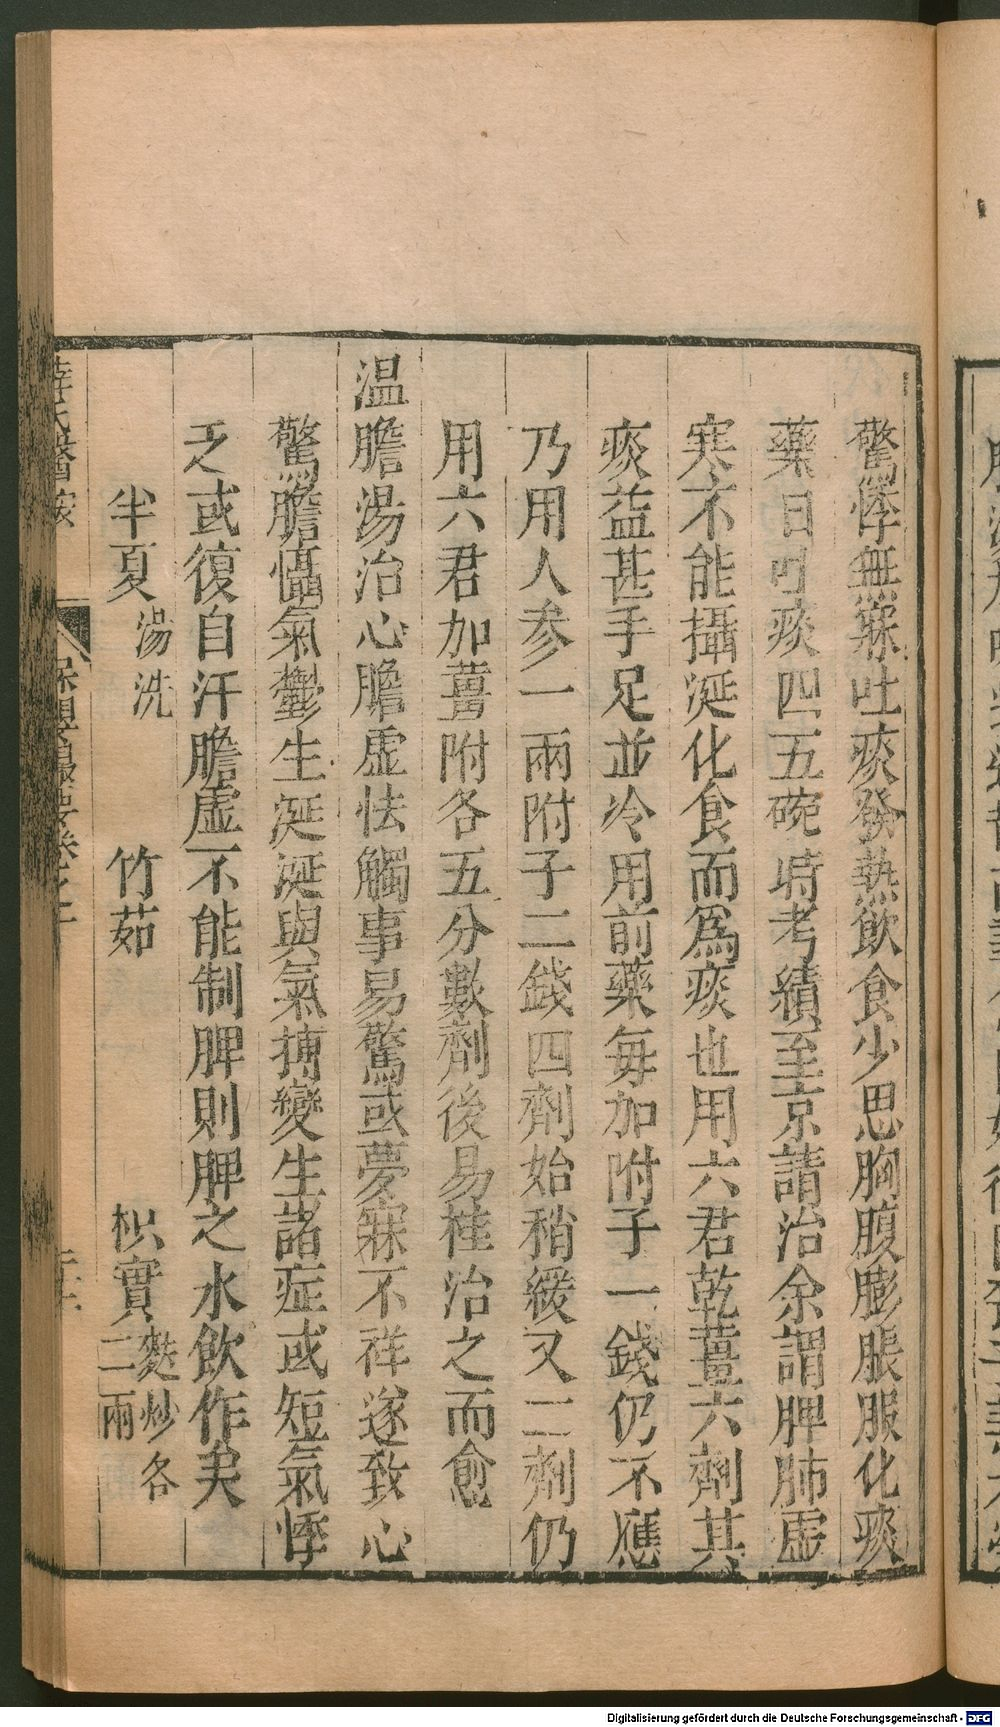 驚悸無寐吐痰發熱飲食少思胸腹膨脹服化痰
藥日吐痰四五碗時考績至京請治余謂脾肺虛
寒不能攝涎化食而爲痰也用六君乾薑六劑其
痰益甚手足並冷用前藥每加附子一錢仍不應
乃用人參一兩附子二錢四劑始稍緩又二劑仍
用六君加薑附各五分數劑後易桂治之而愈
温膽湯治心膽虛怯觸事易驚或夢寐不祥遂致心
驚膽懾氣鬱生涎涎與氣搏變生諸症或短氣悸
乏或復自汗膽虛不能制脾則脾之水飲作矣
半夏湯洗 竹茹 枳實麩炒各二兩
薛氏醫按 保嬰撮要卷之十
Digitalisierung gefördert durch die Deutsche Forschungsgemeinschaft - DFG